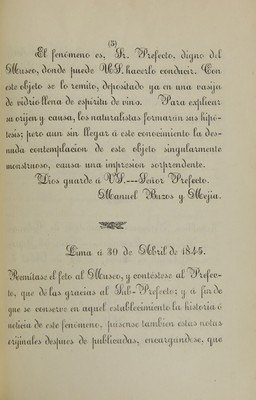 (3)
El fenómeno es, Sr. Prefecto, digno del
Museo, donde puede US. hacerlo conducir. Con
este objeto se lo remito, depositado ya en una vasija
de vidrio llena de espíritu de vino. Para explicar
su orijen y causa, los naturalistas formarán sus hipó-
tesis; pero aun sin llegar á este conocimiento la des-
nuda contemplacion de este objeto singularmente
monstruoso, causa una impresion sorprendente.
Dios guarde á US.---Señor Prefecto.
Manuel Buzos y Mejia.
Lima á 30 de Abril de 1845.
Remítase el feto al Museo, y contéstese al Prefec-
to, que dé las gracias al Sub-Prefecto; y á fin de
que se conserve en aquel establecimiento la historia ó
noticia de este fenómeno, pásense tambien estas notas
orijinales despues de publicadas, encargándose, que